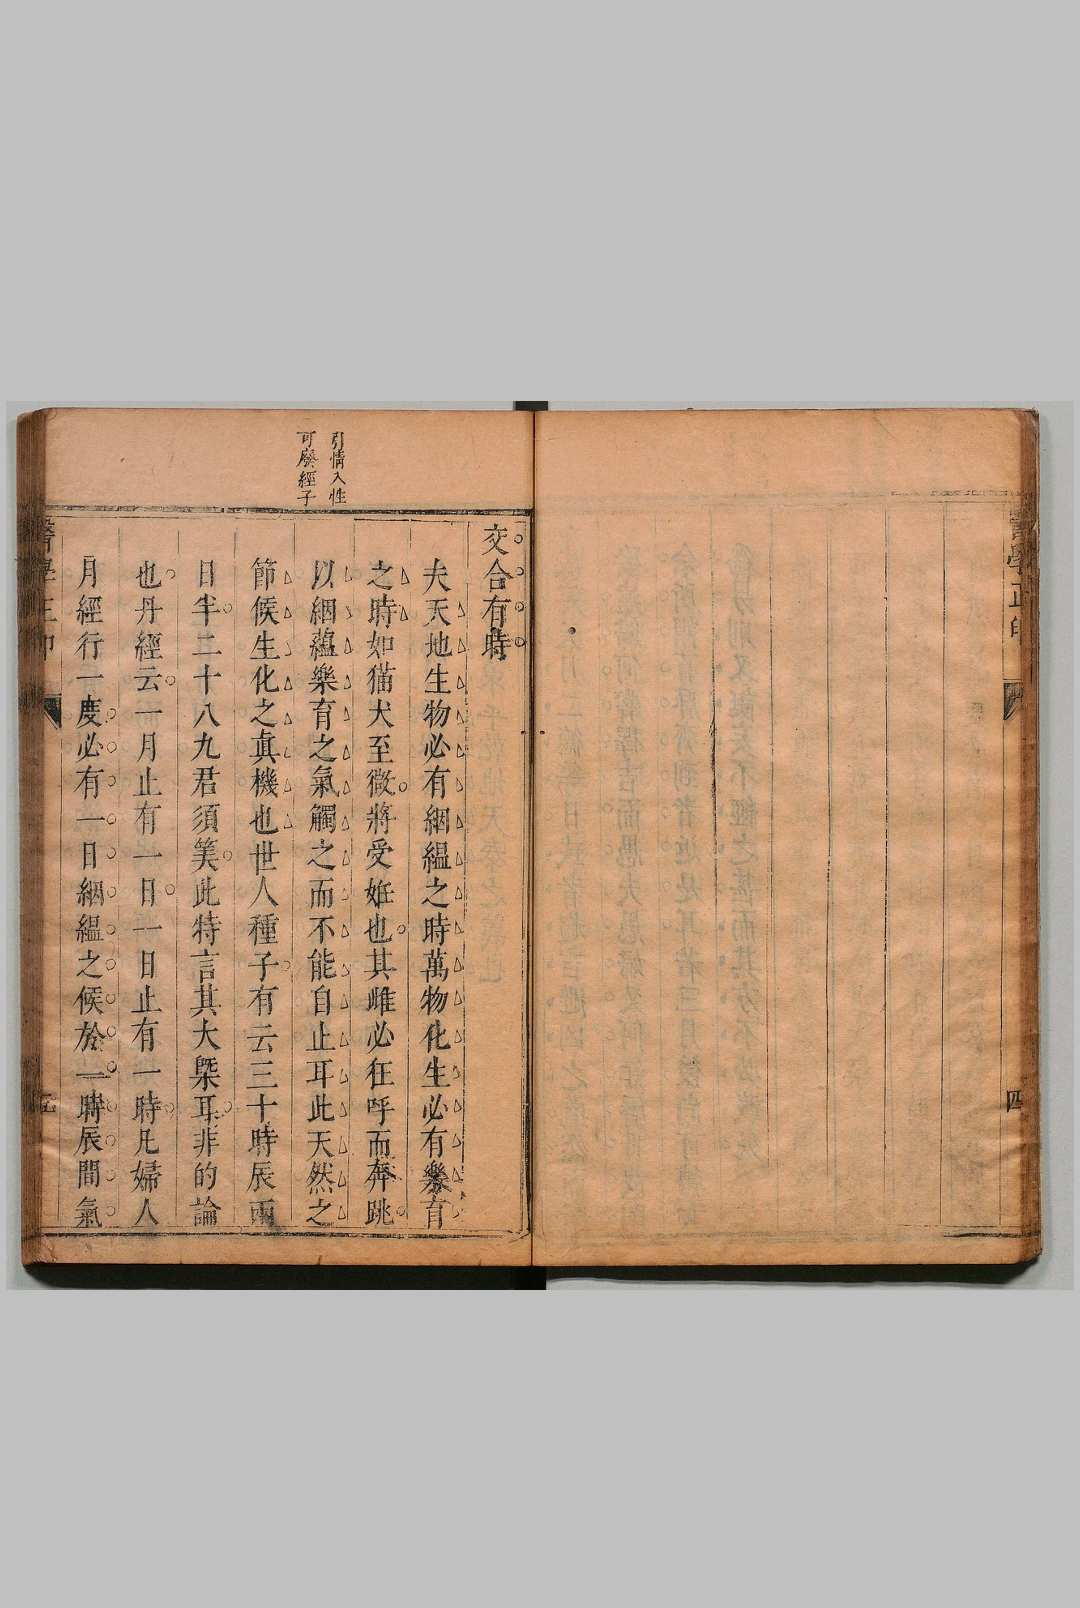 醫學正印
四
引情入性
可廢經子
交合有時
夫天地生物必有絪縕之時萬物化生必有樂育
之時如猫犬至微將受姙也其雌必狂呼而奔跳
以絪蘊樂育之氣觸之而不能自止耳此天然之
節候生化之真機也世人種子有云三十時辰兩
日半二十八九君須筭此特言其大槩耳非的論
也丹經云一月止有一日一日止有一時凡婦人
月經行一度必有一日絪縕之候於一時辰間氣
醫學正印
五